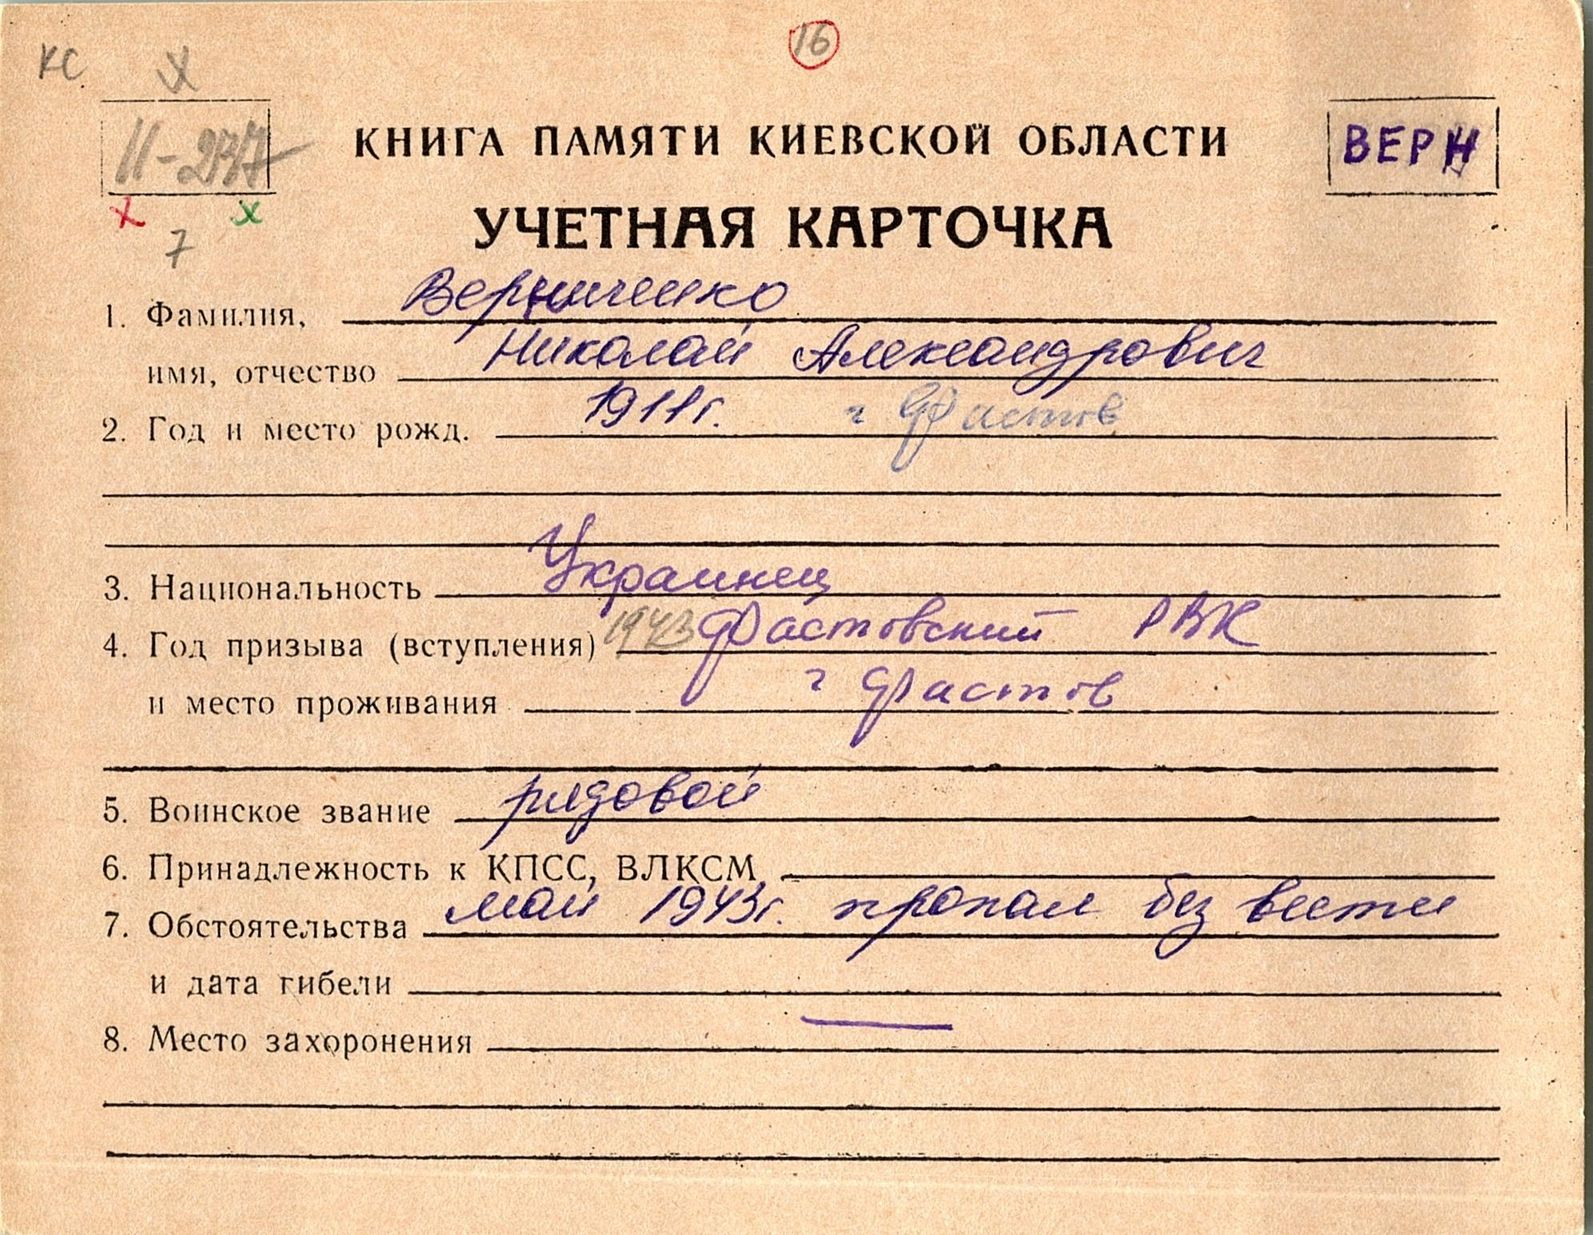 КС
16
II-237
ВЕРН
КНИГА ПАМЯТИ КИЕВСКОЙ ОБЛАСТИ
УЧЕТНАЯ КАРТОЧКА
7
1. Фамилия, Верниченко
имя, отчество Николай Александрович
2. Год и место рожд. 1911г. г Фастов
3. Национальность Украинец
4. Год призыва (вступления) 1943 Фастовский РВК
и место проживания г Фастов
5. Воинское звание рядовой
6. Принадлежность к КПСС, ВЛКСМ
7. Обстоятельства май 1943г. пропал без вести
и дата гибели
8. Место захоронения —